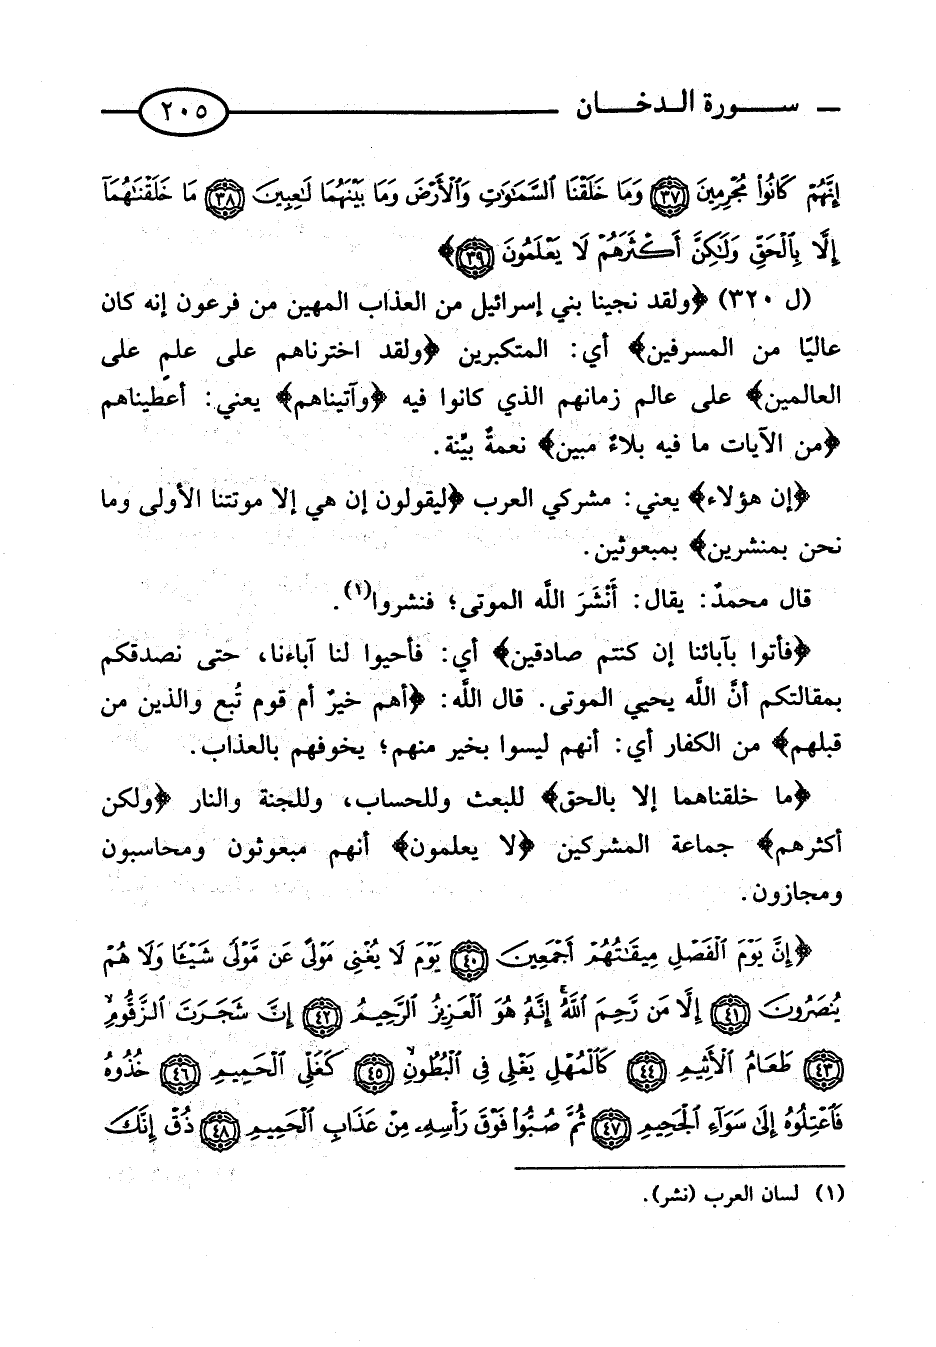 سورة الدخان ٢٠٥
إِنَّهُمْ كَانُوا۟ مُجْرِمِينَ ﴿٣٧﴾ وَمَا خَلَقْنَا ٱلسَّمَٰوَٰتِ وَٱلْأَرْضَ وَمَا بَيْنَهُمَا لَٰعِبِينَ ﴿٣٨﴾ مَا خَلَقْنَٰهُمَآ
إِلَّا بِٱلْحَقِّ وَلَٰكِنَّ أَكْثَرَهُمْ لَا يَعْلَمُونَ ﴿٣٩﴾﴾
(ل ٣٢٠) ﴿ولقد نجينا بني إسرائيل من العذاب المهين من فرعون إنه كان
عاليًا من المسرفين﴾ أي: المتكبرين ﴿ولقد اخترناهم على علمٍ على
العالمين﴾ على عالم زمانهم الذي كانوا فيه ﴿وآتيناهم﴾ يعني: أعطيناهم
﴿من الآيات ما فيه بلاءٌ مبين﴾ نعمةٌ بيِّنة.
﴿إن هؤلاء﴾ يعني: مشركي العرب ﴿ليقولون إن هي إلا موتتنا الأولى وما
نحن بمنشرين﴾ بمبعوثين.
قال محمدٌ: يقال: أَنْشَرَ اللَّه الموتى؛ فنشروا(١).
﴿فأتوا بآبائنا إن كنتم صادقين﴾ أي: فأحيوا لنا آباءنا، حتى نصدقكم
بمقالتكم أنَّ اللَّه يحيي الموتى. قال اللَّه: ﴿أهم خيرٌ أم قوم تُبع والذين من
قبلهم﴾ من الكفار أي: أنهم ليسوا بخير منهم؛ يخوفهم بالعذاب.
﴿ما خلقناهما إلا بالحق﴾ للبعث وللحساب، وللجنة والنار ﴿ولكن
أكثرهم﴾ جماعة المشركين ﴿لا يعلمون﴾ أنهم مبعوثون ومحاسبون
ومجازون.
﴿إِنَّ يَوْمَ ٱلْفَصْلِ مِيقَٰتُهُمْ أَجْمَعِينَ ﴿٤٠﴾ يَوْمَ لَا يُغْنِى مَوْلًى عَن مَّوْلًى شَيْـًٔا وَلَا هُمْ
يُنصَرُونَ ﴿٤١﴾ إِلَّا مَن رَّحِمَ ٱللَّهُ ۚ إِنَّهُۥ هُوَ ٱلْعَزِيزُ ٱلرَّحِيمُ ﴿٤٢﴾ إِنَّ شَجَرَتَ ٱلزَّقُّومِ
﴿٤٣﴾ طَعَامُ ٱلْأَثِيمِ ﴿٤٤﴾ كَٱلْمُهْلِ يَغْلِى فِى ٱلْبُطُونِ ﴿٤٥﴾ كَغَلْىِ ٱلْحَمِيمِ ﴿٤٦﴾ خُذُوهُ
فَٱعْتِلُوهُ إِلَىٰ سَوَآءِ ٱلْجَحِيمِ ﴿٤٧﴾ ثُمَّ صُبُّوا۟ فَوْقَ رَأْسِهِۦ مِنْ عَذَابِ ٱلْحَمِيمِ ﴿٤٨﴾ ذُقْ إِنَّكَ
(١) لسان العرب (نشر).